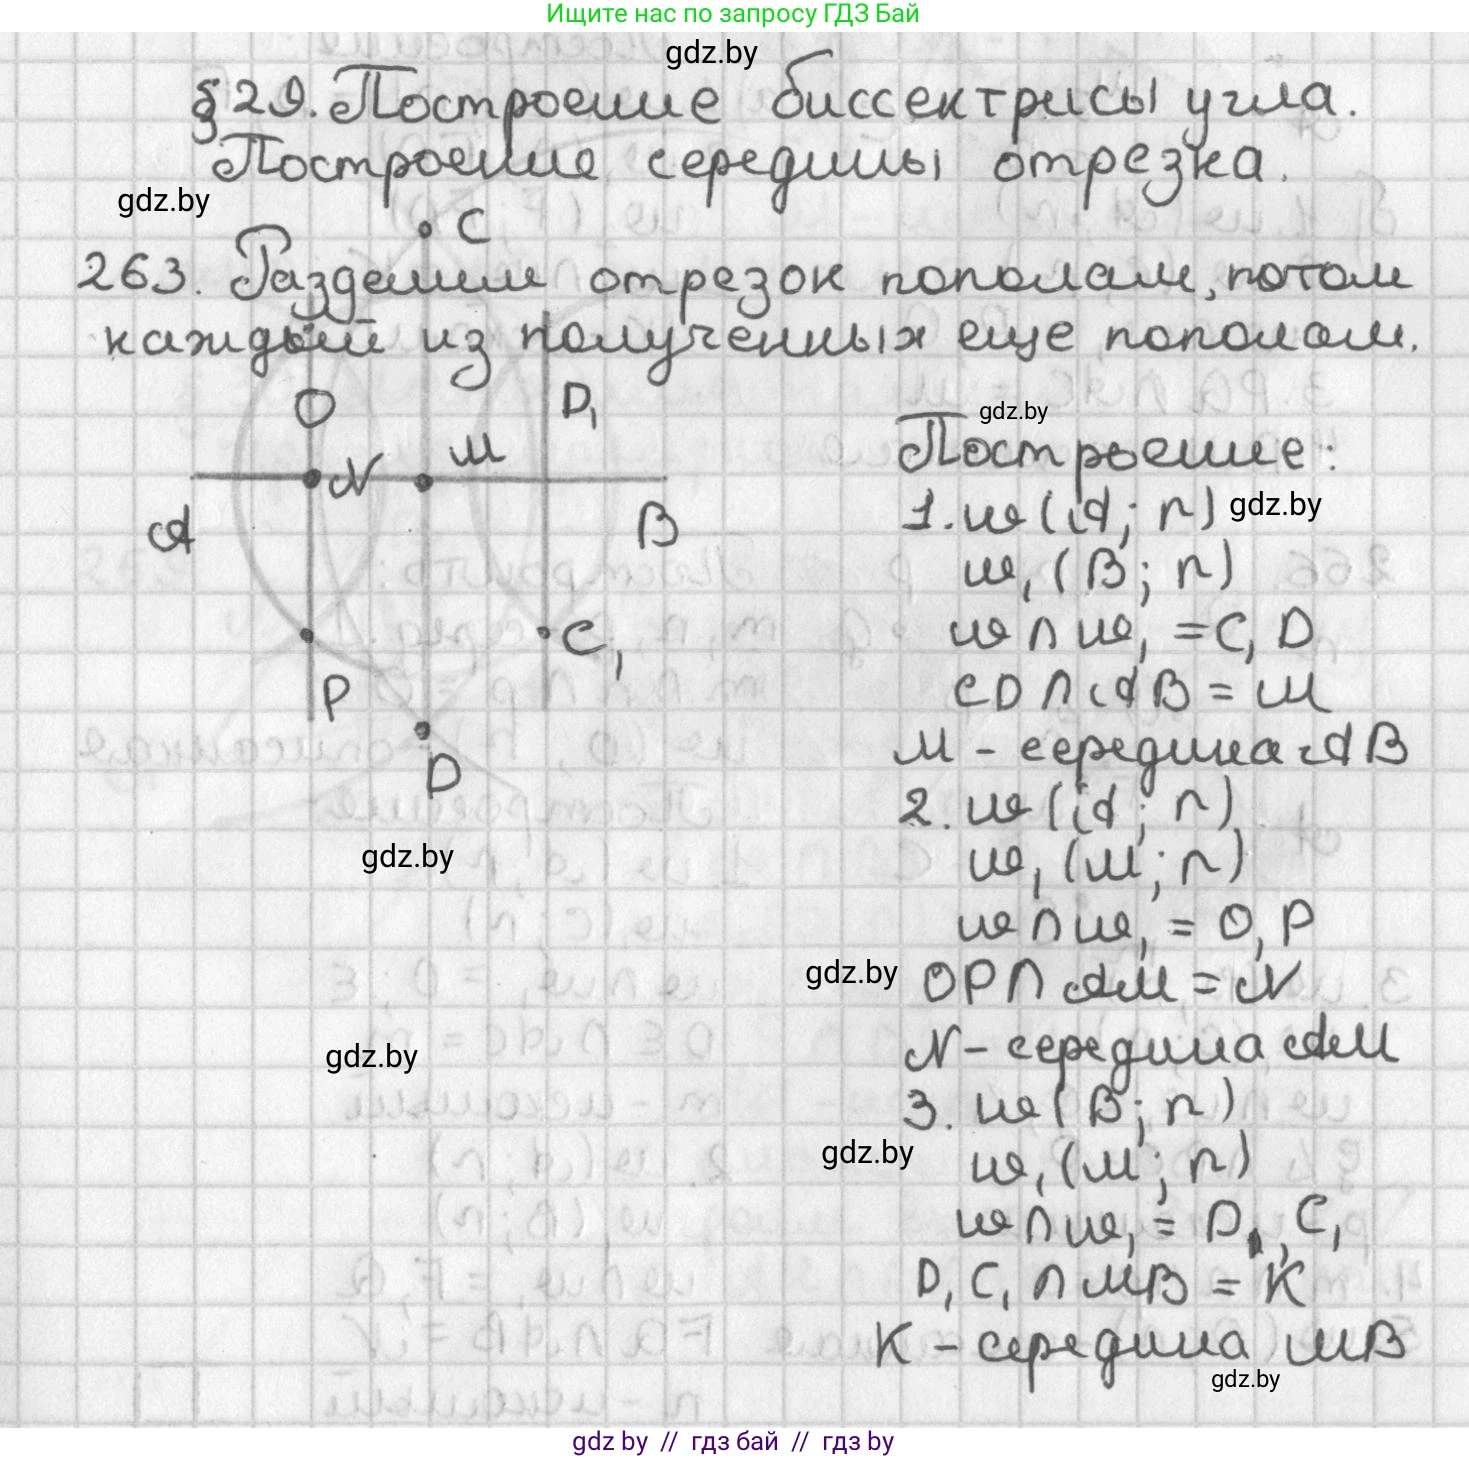 Ищите нас по запросу ГДЗ Бай
gdz.by
§29. Построение биссектрисы угла.
Построение середины отрезка.
gdz.by
C
263. Разделим отрезок пополам, потом
каждый из полученных еще пополам.
O
D₁
N
M
A
B
C₁
P
D
gdz.by
Построение:
1. ω(A; r) gdz.by
ω₁(B; r)
ω∩ω₁ = C, D
CD∩AB = M
M - середина AB
2. ω(A; r)
gdz.by
ω₁(M; r)
ω∩ω₁ = O, P
gdz.by OP∩AM = N
gdz.by
N - середина AM
3. ω(B; r)
gdz.by
ω₁(M; r)
ω∩ω₁ = D₁, C₁
D₁C₁∩MB = K
K - середина MB
gdz.by
gdz by // gdz бай // gdz by